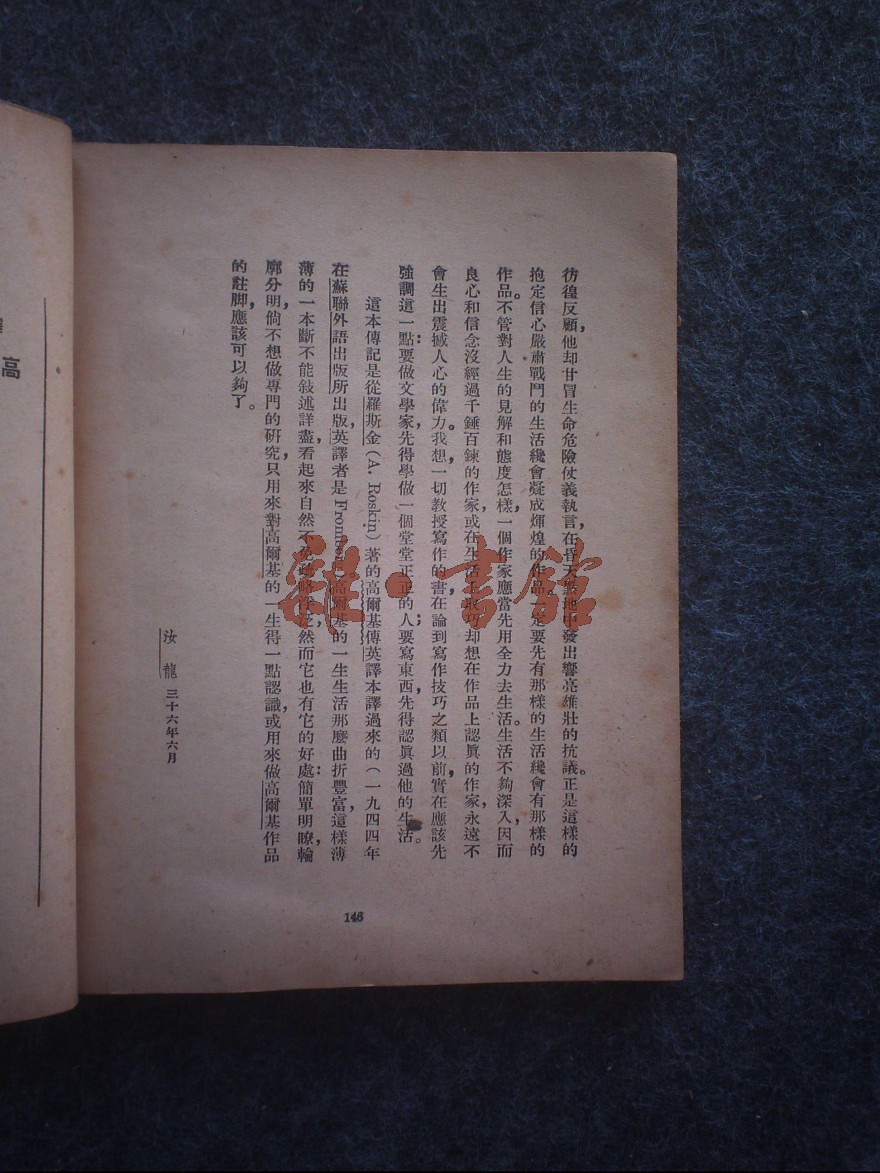 彷徨反顧，他却甘冒生命危險仗義執言，在昏天黑地中發出響亮雄壯的抗議。正是這樣的
抱定信心嚴肅戰鬥的生活纔會凝成煇煌的作品。一定要先有那樣的生活纔會有那樣的
作品。不管對人生的見解和態度怎樣，一個作家應當先用全力去生活。生活不夠深入，因而
良心和信念沒經過千錘百鍊的作家，或在生活上取巧却想在作品上認真的作家，永遠不
會生出震撼人心的偉力。我想，一切教授寫作的書，在論到寫作技巧之類以前，實在應該先
強調這一點：要做文學家，先得學做一個堂堂正正的人；要寫東西，先得認眞過他的生活。
這本傳記是從羅斯金（A. Roskin）著的高爾基傳英譯本譯過來的（一九四四年
在蘇聯外語出版所出版，英譯者是Fromberg）高爾基的一生生活那麼曲折豐富，這樣薄
薄的一本斷不能敍述詳盡，看起來自然不免 然而它也有它的好處：簡單明瞭，輪
廓分明，倘不想做專門的研究，只用來對高爾基的一生得一點認識，或用來做高爾基作品
的註脚，應該可以夠了。
汝龍 三十六年六月
146
雜·書館
高